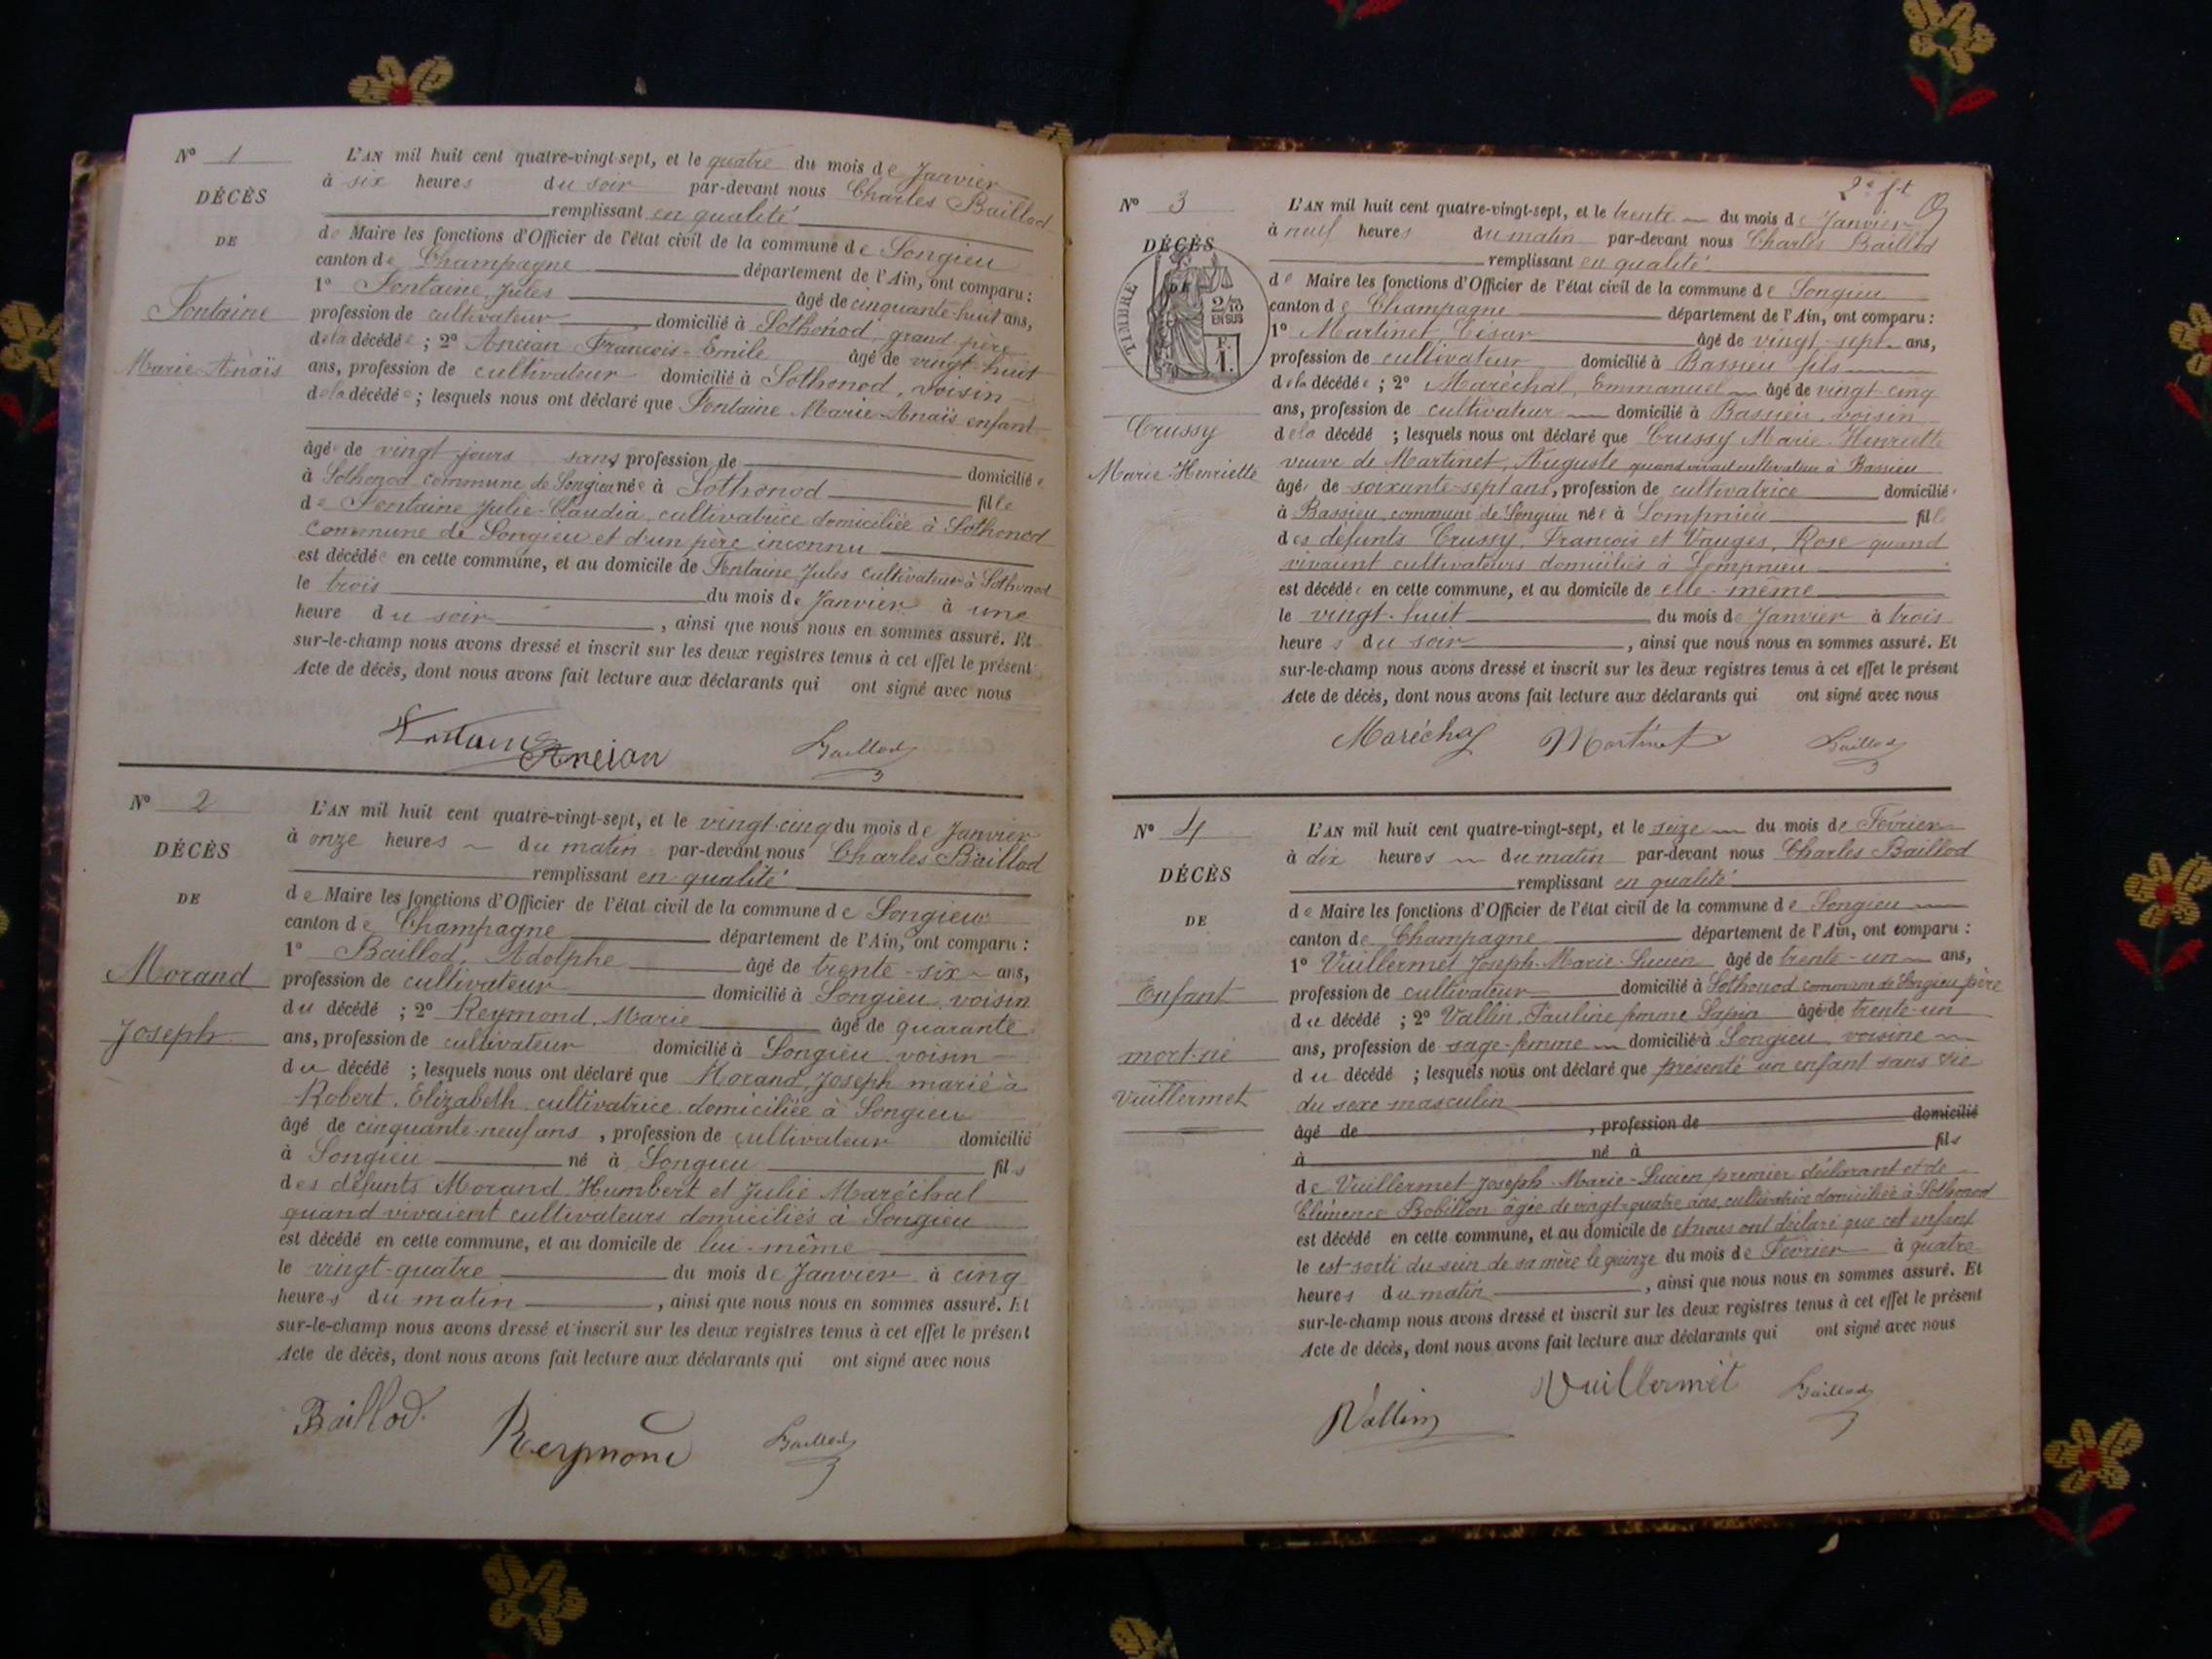 N° 1
DÉCÈS
DE
Fontaine
Marie-Anaïs
L'AN mil huit cent quatre-vingt-sept, et le quatre du mois de Janvier
à six heures du soir par-devant nous Charles Baillod
remplissant en qualité
de Maire les fonctions d'Officier de l'état civil de la commune de Songieu
canton de Champagne département de l'Ain, ont comparu :
1° Fontaine Jules âgé de cinquante-huit ans,
profession de cultivateur domicilié à Sothonod, grand-père
de la décédée ; 2° Ancian François-Emile âgé de vingt-huit
ans, profession de cultivateur domicilié à Sothonod, voisin
de la décédée ; lesquels nous ont déclaré que Fontaine Marie-Anaïs enfant
âgée de vingt jours sans profession de domiciliée
à Sothonod commune de Songieu née à Sothonod fille
de Fontaine Julie-Claudia, cultivatrice domiciliée à Sothonod
commune de Songieu et d'un père inconnu
est décédée en cette commune, et au domicile de Fontaine Jules cultivateur à Sothonod
le trois du mois de Janvier à une
heure du soir, ainsi que nous nous en sommes assuré. Et
sur-le-champ nous avons dressé et inscrit sur les deux registres tenus à cet effet le présent
Acte de décès, dont nous avons fait lecture aux déclarants qui ont signé avec nous
Fontaine Ancian Baillod
N° 2
DÉCÈS
DE
Morand
Joseph
L'AN mil huit cent quatre-vingt-sept, et le vingt-cinq du mois de Janvier
à onze heures du matin par-devant nous Charles Baillod
remplissant en qualité
de Maire les fonctions d'Officier de l'état civil de la commune de Songieu
canton de Champagne département de l'Ain, ont comparu :
1° Baillod, Adolphe âgé de trente-six ans,
profession de cultivateur domicilié à Songieu, voisin
du décédé ; 2° Reymond, Marie âgé de quarante
ans, profession de cultivateur domicilié à Songieu voisin
du décédé ; lesquels nous ont déclaré que Morand, Joseph marié à
Robert, Elizabeth, cultivatrice domiciliée à Songieu
âgé de cinquante-neuf ans, profession de cultivateur domicilié
à Songieu né à Songieu fils
des défunts Morand Humbert et Julie Maréchal
quand vivaient cultivateurs domiciliés à Songieu
est décédé en cette commune, et au domicile de lui-même
le vingt-quatre du mois de Janvier à cinq
heures du matin, ainsi que nous nous en sommes assuré. Et
sur-le-champ nous avons dressé et inscrit sur les deux registres tenus à cet effet le présent
Acte de décès, dont nous avons fait lecture aux déclarants qui ont signé avec nous
Baillod. Reymond Baillod
2e ft
N° 3
DÉCÈS
TIMBRE
2/10
EN SUS
F.
1.
Crussy
Marie-Henriette
L'AN mil huit cent quatre-vingt-sept, et le trente du mois de Janvier
à neuf heures du matin par-devant nous Charles Baillod
remplissant en qualité
de Maire les fonctions d'Officier de l'état civil de la commune de Songieu
canton de Champagne département de l'Ain, ont comparu :
1° Martinet César âgé de vingt-sept ans,
profession de cultivateur domicilié à Bassieu fils
de la décédée ; 2° Maréchal, Emmanuel âgé de vingt-cinq
ans, profession de cultivateur domicilié à Bassieu, voisin
de la décédé ; lesquels nous ont déclaré que Crussy Marie-Henriette
veuve de Martinet, Auguste quand vivait cultivateur à Bassieu
âgée de soixante-sept ans, profession de cultivatrice domicilié
à Bassieu, commune de Songieu née à Lompnieu fille
des défunts Crussy, François et Vauges, Rose quand
vivaient cultivateurs domiciliés à Lompnieu
est décédée en cette commune, et au domicile de elle-même
le vingt-huit du mois de Janvier à trois
heures du soir, ainsi que nous nous en sommes assuré. Et
sur-le-champ nous avons dressé et inscrit sur les deux registres tenus à cet effet le présent
Acte de décès, dont nous avons fait lecture aux déclarants qui ont signé avec nous
Maréchal Martinet Baillod
N° 4
DÉCÈS
DE
Enfant
mort-né
Vuillermet
L'AN mil huit cent quatre-vingt-sept, et le seize du mois de Février
à dix heures du matin par-devant nous Charles Baillod
remplissant en qualité
de Maire les fonctions d'Officier de l'état civil de la commune de Songieu
canton de Champagne département de l'Ain, ont comparu :
1° Vuillermet Joseph-Marie-Lucien âgé de trente-un ans,
profession de cultivateur domicilié à Sothonod commune de Songieu père
du décédé ; 2° Vallin, Pauline femme Sapin âgé de trente-un
ans, profession de sage-femme domicilié à Songieu voisine
du décédé ; lesquels nous ont déclaré que présenté un enfant sans vie
du sexe masculin
âgé de , profession de domicilié
à né à fils
de Vuillermet Joseph-Marie-Lucien premier déclarant et de
Clémence Bobillon âgée de vingt-quatre ans, cultivatrice domiciliée à Sothonod
est décédé en cette commune, et au domicile de et nous ont déclaré que cet enfant
le est sorti du sein de sa mère le quinze du mois de Février à quatre
heures du matin, ainsi que nous nous en sommes assuré. Et
sur-le-champ nous avons dressé et inscrit sur les deux registres tenus à cet effet le présent
Acte de décès, dont nous avons fait lecture aux déclarants qui ont signé avec nous
Vallin Vuillermet Baillod